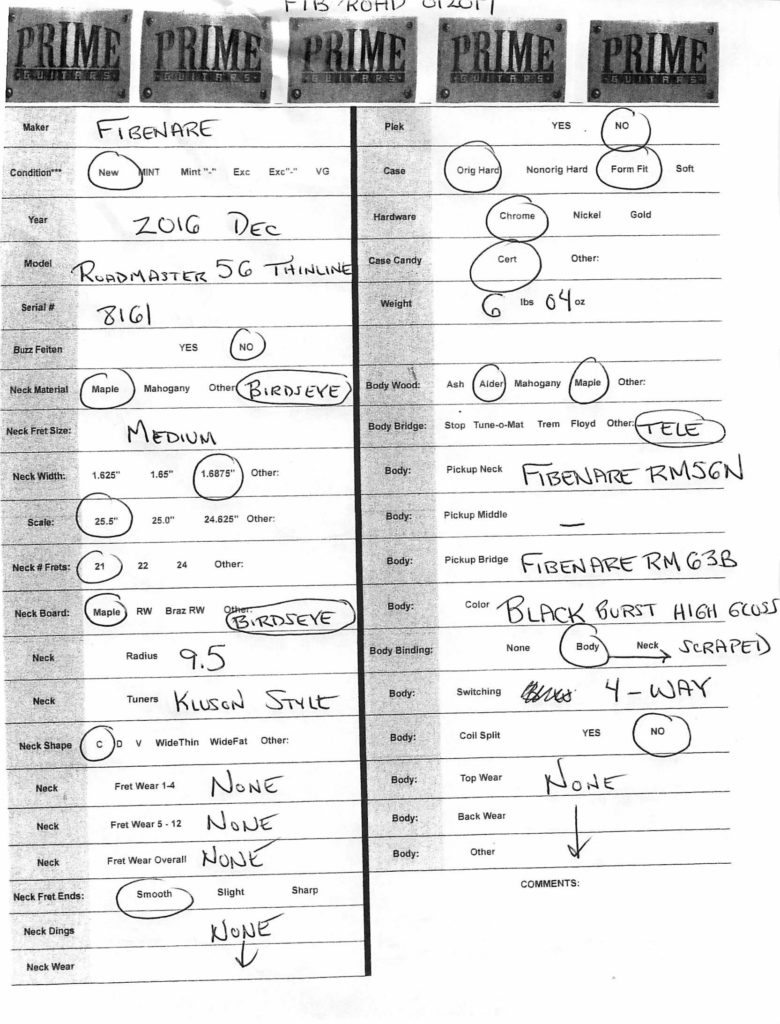 FIB ROAD 012017
PRIME GUITARS PRIME GUITARS PRIME GUITARS PRIME GUITARS PRIME GUITARS
Maker FIBENARE
Condition*** New MINT Mint "-" Exc Exc"-" VG
Year 2016 DEC
Model ROADMASTER 56 THINLINE
Serial # 8161
Buzz Feiten YES NO
Neck Material Maple Mahogany Other BIRDSEYE
Neck Fret Size: MEDIUM
Neck Width: 1.625" 1.65" 1.6875" Other:
Scale: 25.5" 25.0" 24.625" Other:
Neck # Frets: 21 22 24 Other:
Neck Board: Maple RW Braz RW Other: BIRDSEYE
Neck Radius 9.5
Neck Tuners KLUSON STYLE
Neck Shape C D V WideThin WideFat Other:
Neck Fret Wear 1-4 NONE
Neck Fret Wear 5 - 12 NONE
Neck Fret Wear Overall NONE
Neck Fret Ends: Smooth Slight Sharp
Neck Dings NONE
Neck Wear
Plek YES NO
Case Orig Hard Nonorig Hard Form Fit Soft
Hardware Chrome Nickel Gold
Case Candy Cert Other:
Weight 6 lbs 04 oz
Body Wood: Ash Alder Mahogany Maple Other:
Body Bridge: Stop Tune-o-Mat Trem Floyd Other: TELE
Body: Pickup Neck FIBENARE RM56N
Body: Pickup Middle —
Body: Pickup Bridge FIBENARE RM63B
Body: Color BLACK BURST HIGH GLOSS
Body Binding: None Body Neck SCRAPED
Body: Switching 4-WAY
Body: Coil Split YES NO
Body: Top Wear NONE
Body: Back Wear
Body: Other
COMMENTS: